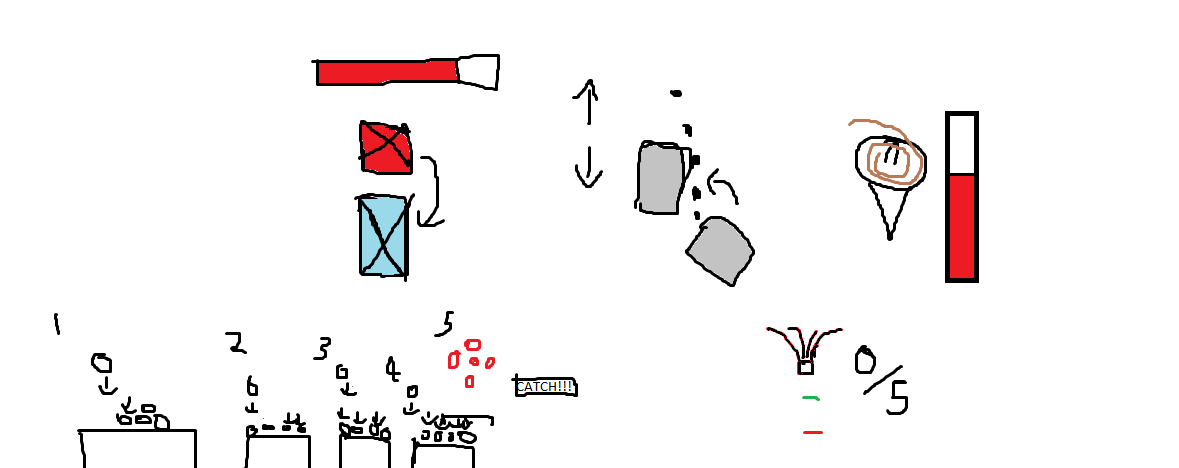 1
2
3
4
5
CATCH!!!
0/5